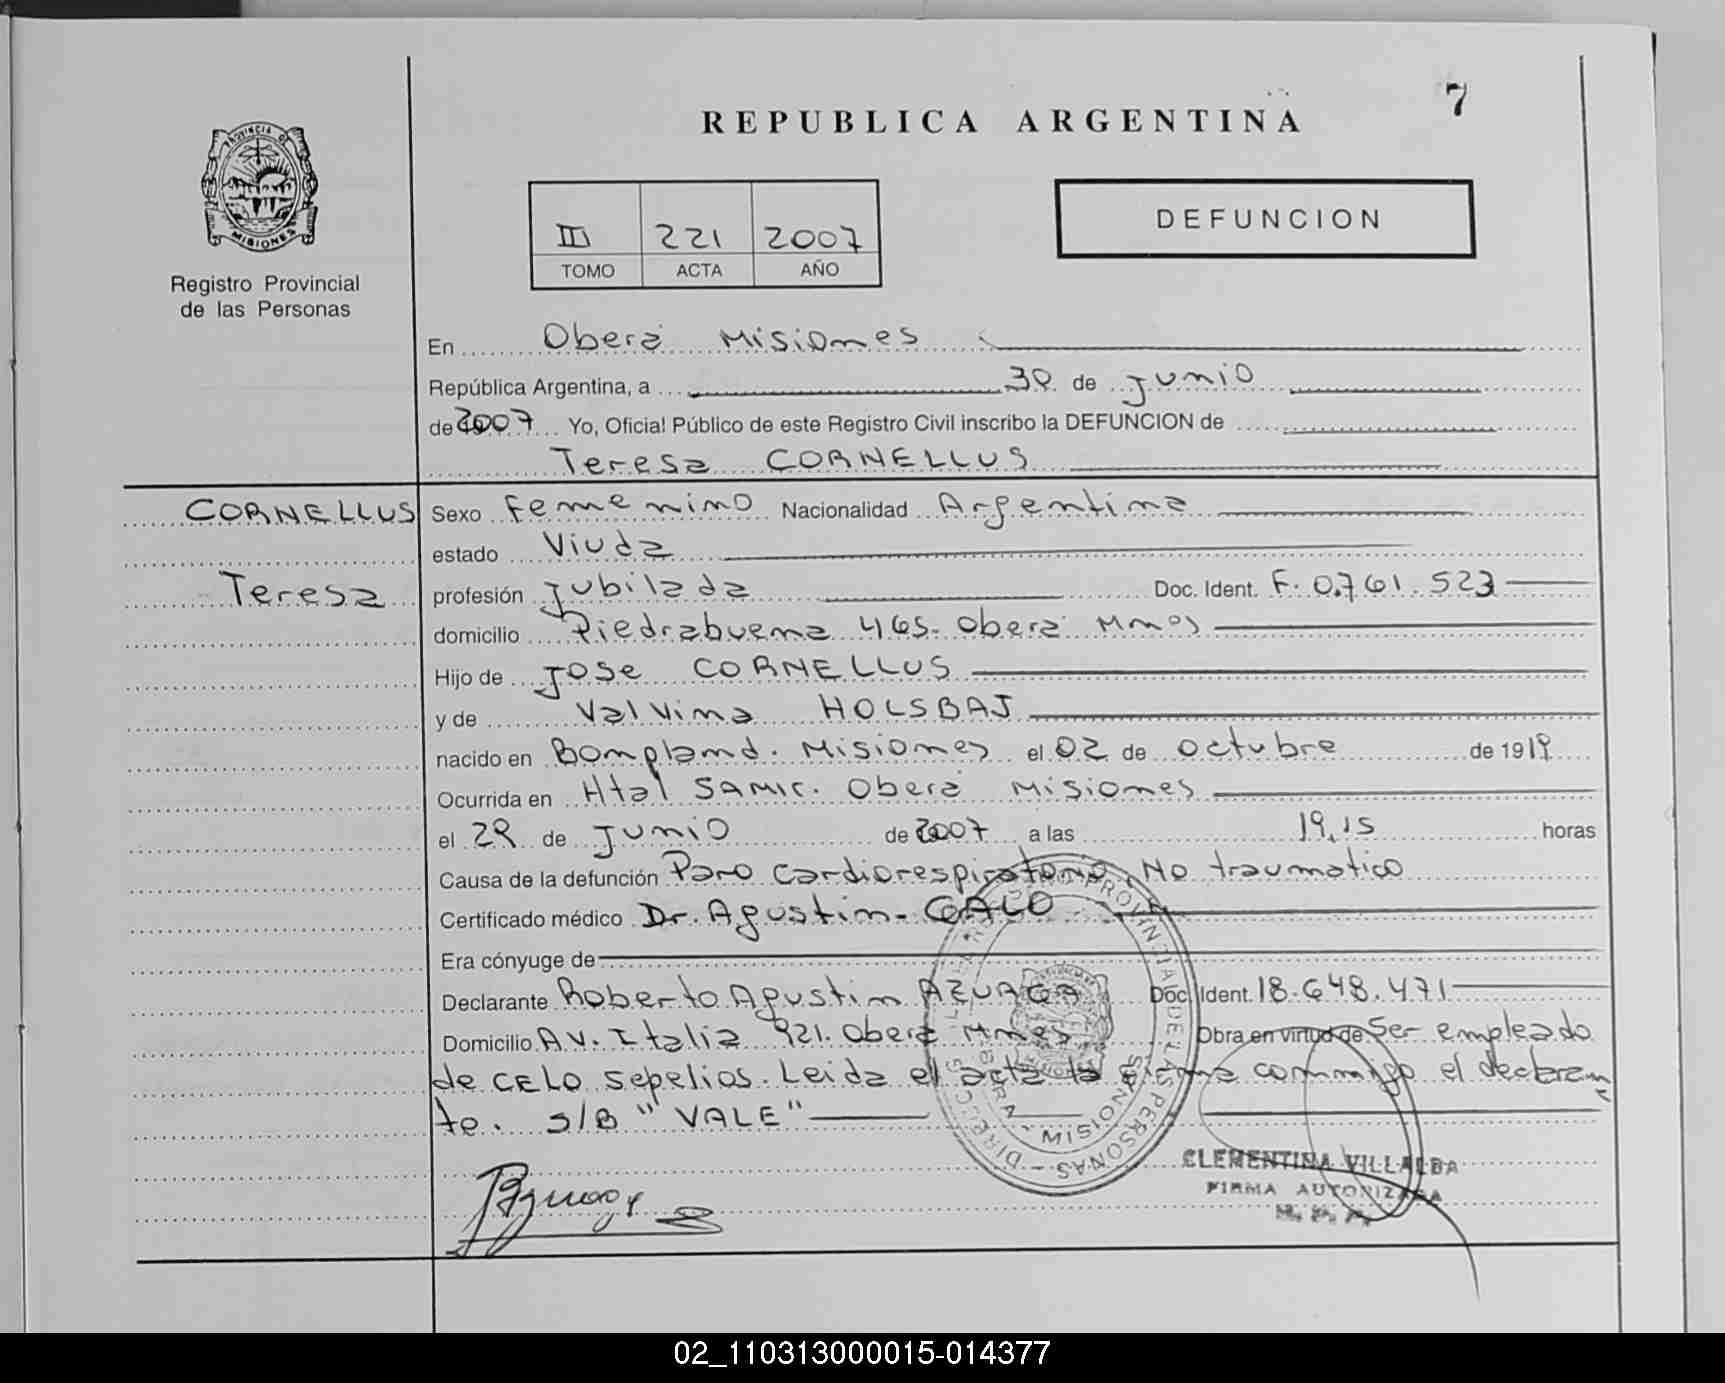 7
REPUBLICA ARGENTINA
PROVINCIA DE
MISIONES
Registro Provincial
de las Personas
III 221 2007
TOMO ACTA AÑO
DEFUNCION
En Oberá Misiones
República Argentina, a 30 de Junio
de 2007 Yo, Oficial Público de este Registro Civil inscribo la DEFUNCION de
Teresa CORNELLUS
CORNELLUS
Teresa
Sexo Femenino Nacionalidad Argentina
estado Viuda
profesión Jubilada Doc. Ident. F. 0.761.523
domicilio Piedrabuena 465. Oberá Mnes
Hijo de Jose CORNELLUS
y de Valvina HOLSBAJ
nacido en Bompland. Misiones el 02 de octubre de 1919
Ocurrida en Htal SAMIC. Oberá Misiones
el 29 de Junio de 2007 a las 19,15 horas
Causa de la defunción Paro cardiorespiratorio. No traumatico
Certificado médico Dr. Agustin
Era cónyuge de
Declarante Roberto Agustin AZUAGA Doc. Ident. 18.648.471
Domicilio AV. Italia 921. Oberá Mnes Obra en virtud de Ser empleado
de CELO sepelios. Leida el acta la firma conmigo el declaran
te. S/B "VALE"
MISIONES
CLEMENTINA VILLALBA
FIRMA AUTORIZADA
R. P. P.
02_110313000015-014377